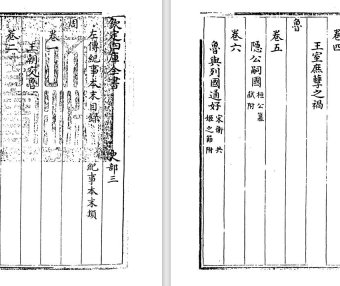 欽定四庫全書 史部三
左傳紀事本末目錄 紀事本末類
周
卷一
王朝交魯
卷二
卷四
王室庶孽之禍
魯
卷五
隐公嗣國 桓公簒弑附
卷六
魯與列國通好 宋衛共姬之節附